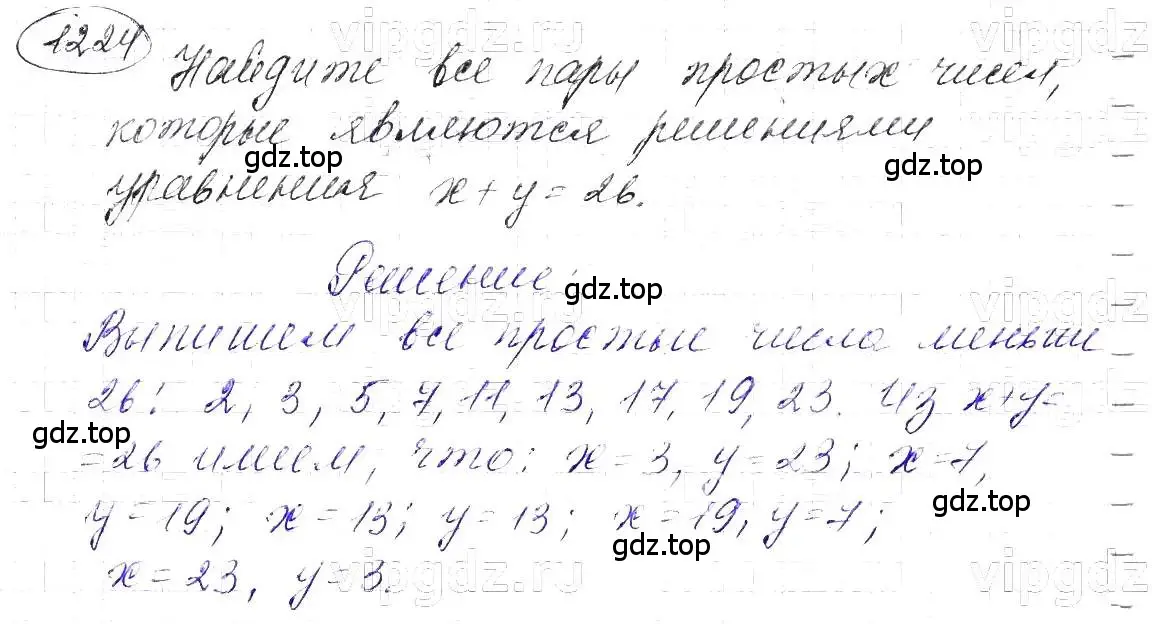 1224
Найдите все пары простых чисел,
которые являются решениями
уравнения x + y = 26.
Решение:
Выпишем все простые числа меньше
26: 2, 3, 5, 7, 11, 13, 17, 19, 23. Из x+y=
=26 имеем, что: x=3, y=23; x=7,
y=19; x=13; y=13; x=19, y=7;
x=23, y=3.
gdz.top
gdz.top
gdz.top
gdz.top
gdz.top
gdz.top
vipgdz.ru
vipgdz
vipgdz.ru
vipgdz
vipgdz.ru
vipgdz